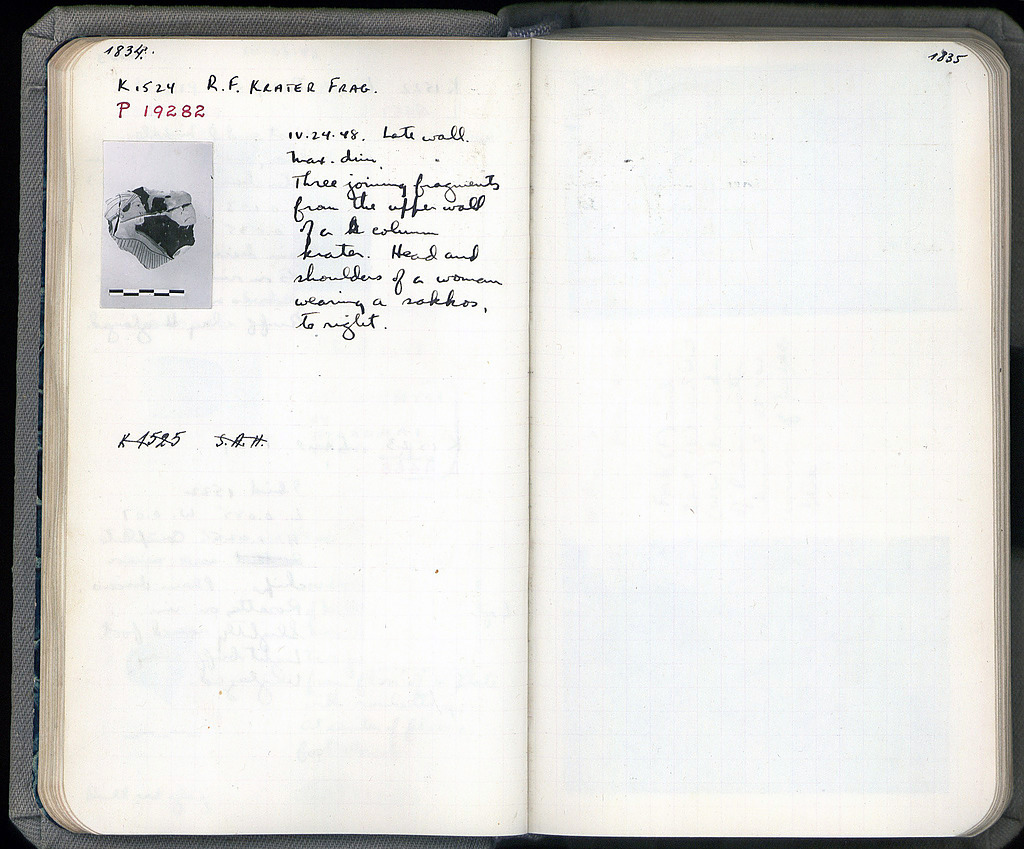 1834.
K 1524 R.F. KRATER FRAG.
P 19282
IV.24.48. Late wall.
Max. dim.
Three joining fragments
from the upper wall
of a column
krater. Head and
shoulders of a woman
wearing a sakkos,
to right.
K 1525 S.A.H.
1835